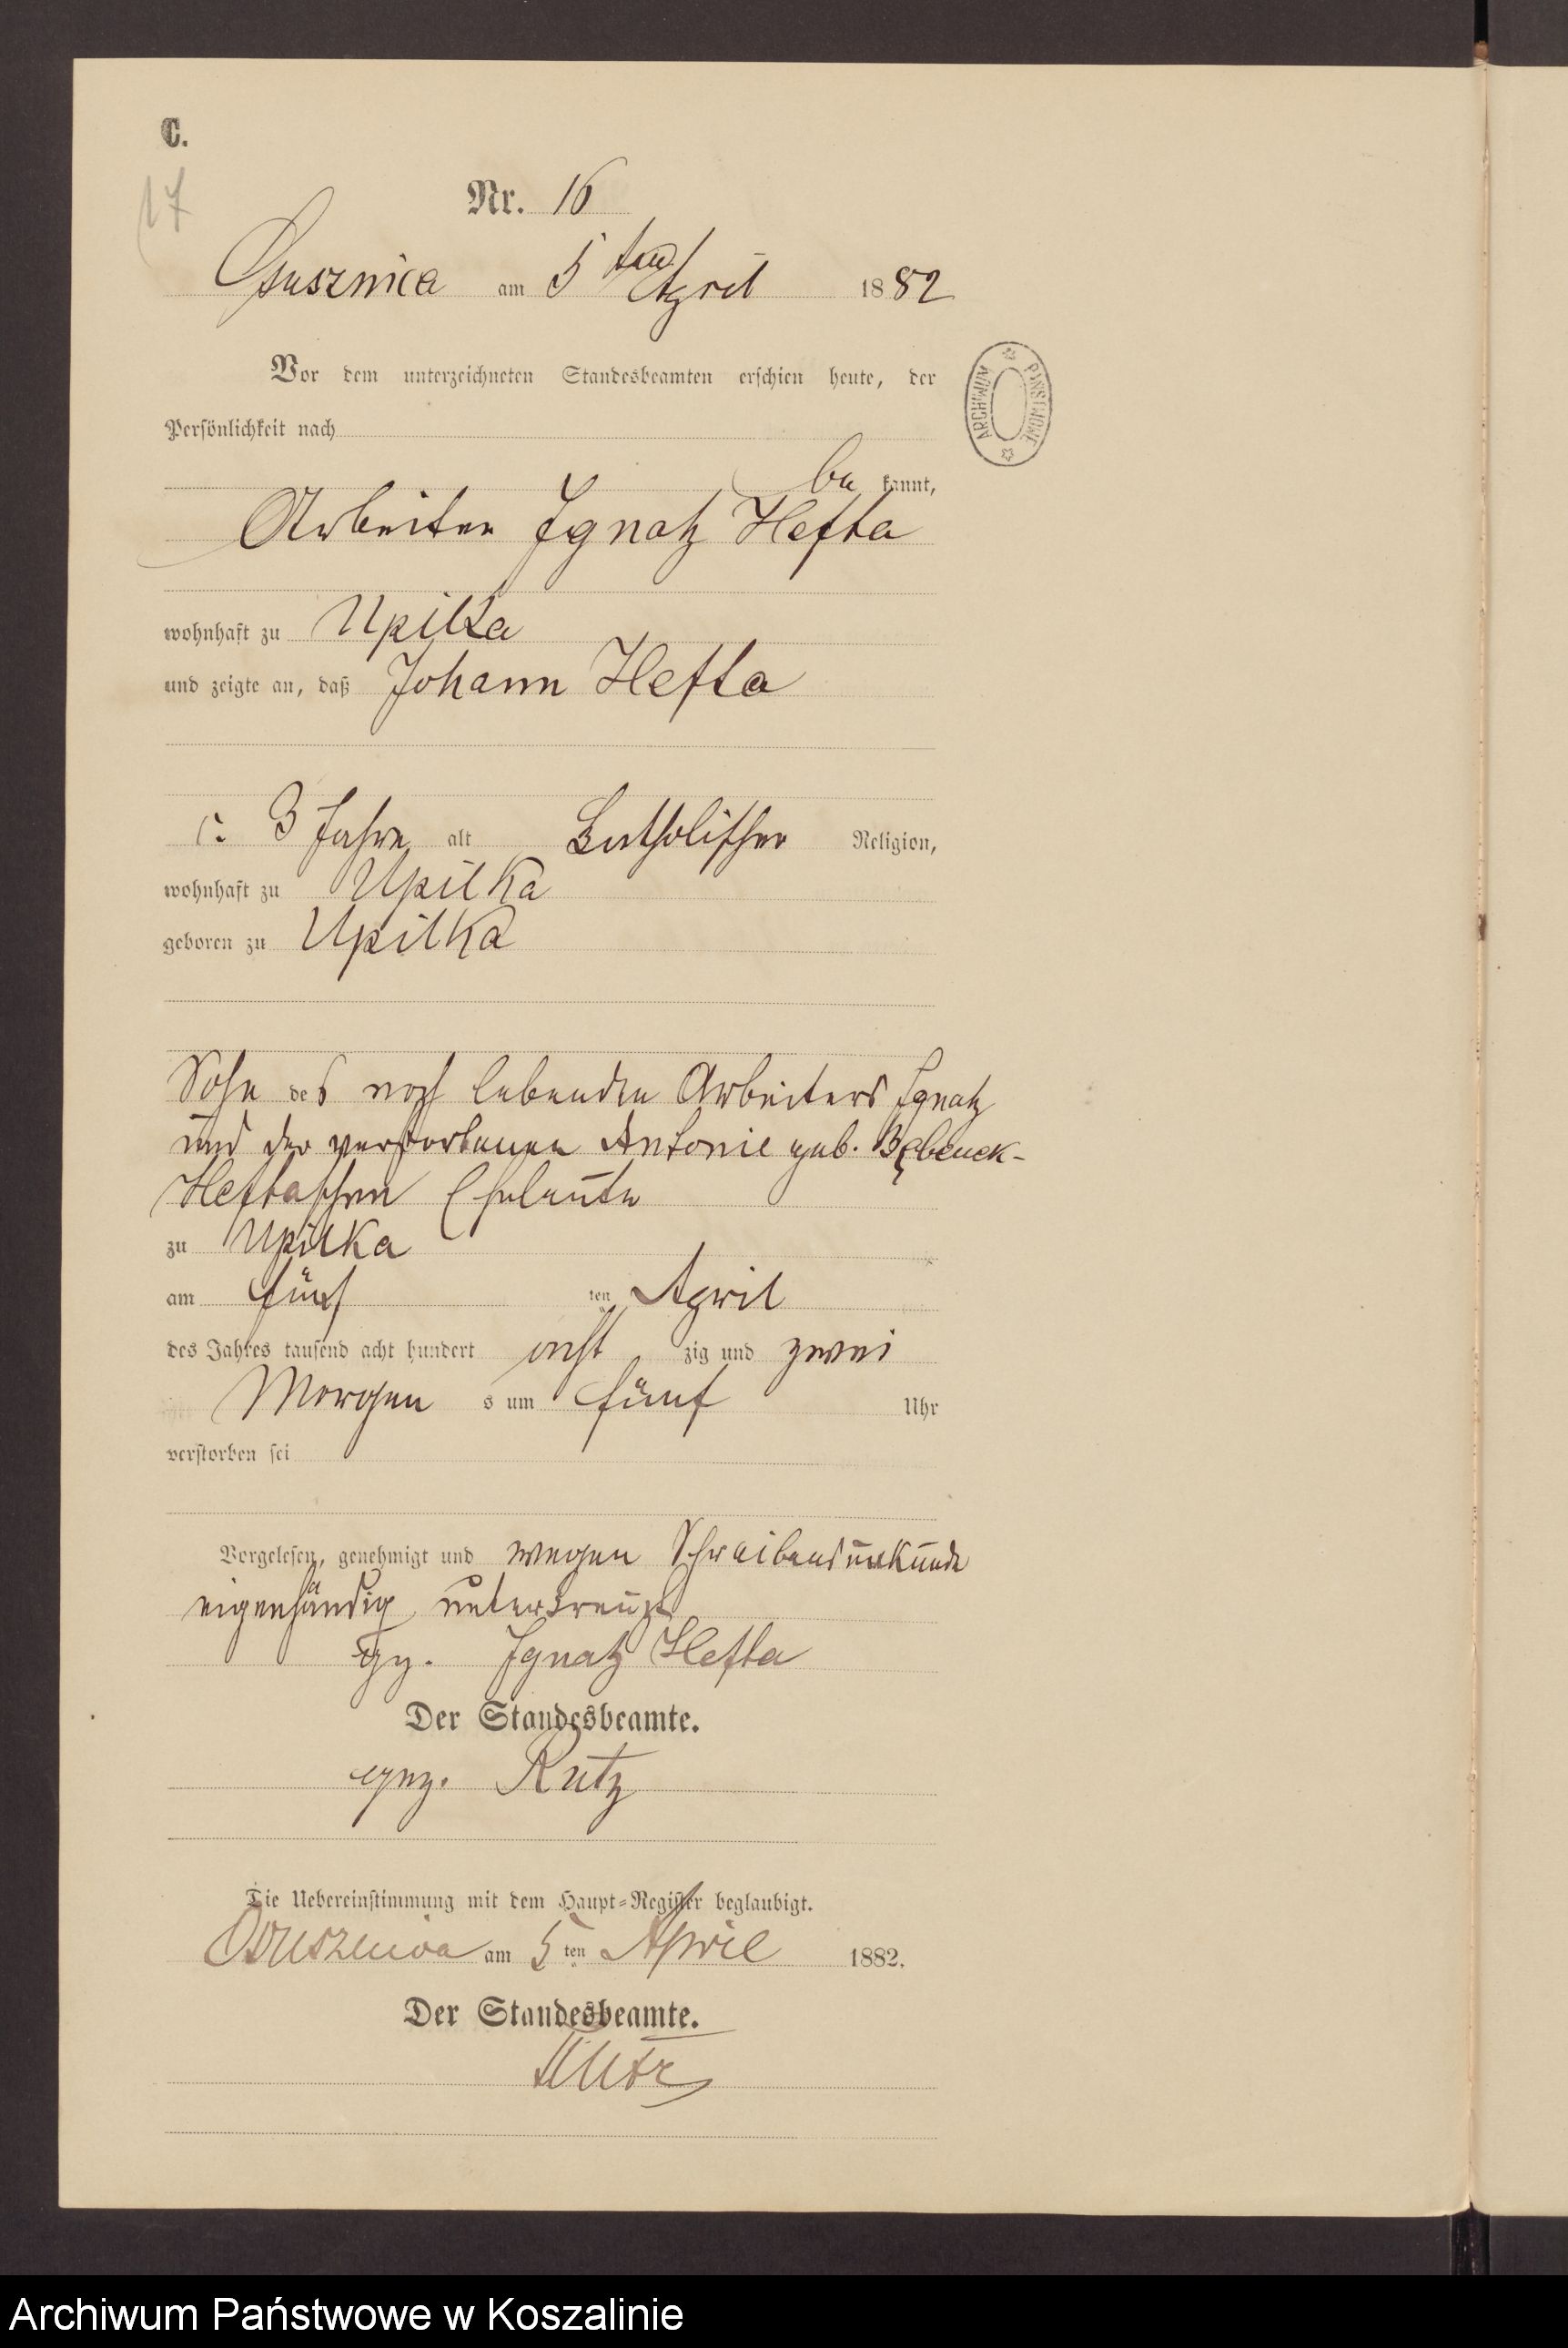 C.
17
Nr. 16
Osusznica am 5ten April 1882
Vor dem unterzeichneten Standesbeamten erschien heute, der
Persönlichkeit nach
be kannt,
Arbeiter Ignatz Hefta
wohnhaft zu Upilka
und zeigte an, daß Johann Hefta
3 Jahre alt katholischer Religion,
wohnhaft zu Upilka
geboren zu Upilka
Sohn des noch lebenden Arbeiters Ignatz
und der verstorbenen Antonie geb.
Heftaschen Eheleute
zu Upilka
am fünf ten April
des Jahres tausend acht hundert acht zig und zwei
Morgen s um fünf Uhr
verstorben sei
Vorgelesen, genehmigt und wegen Schreibensunkunde
eigenhändig unterkreuzt
Ignatz Hefta
Der Standesbeamte.
gez. Rutz
Die Uebereinstimmung mit dem Haupt-Register beglaubigt.
Osusznica am 5ten April 1882.
Der Standesbeamte.
Rutz
ARCHIWUM PAŃSTWOWE
Archiwum Państwowe w Koszalinie